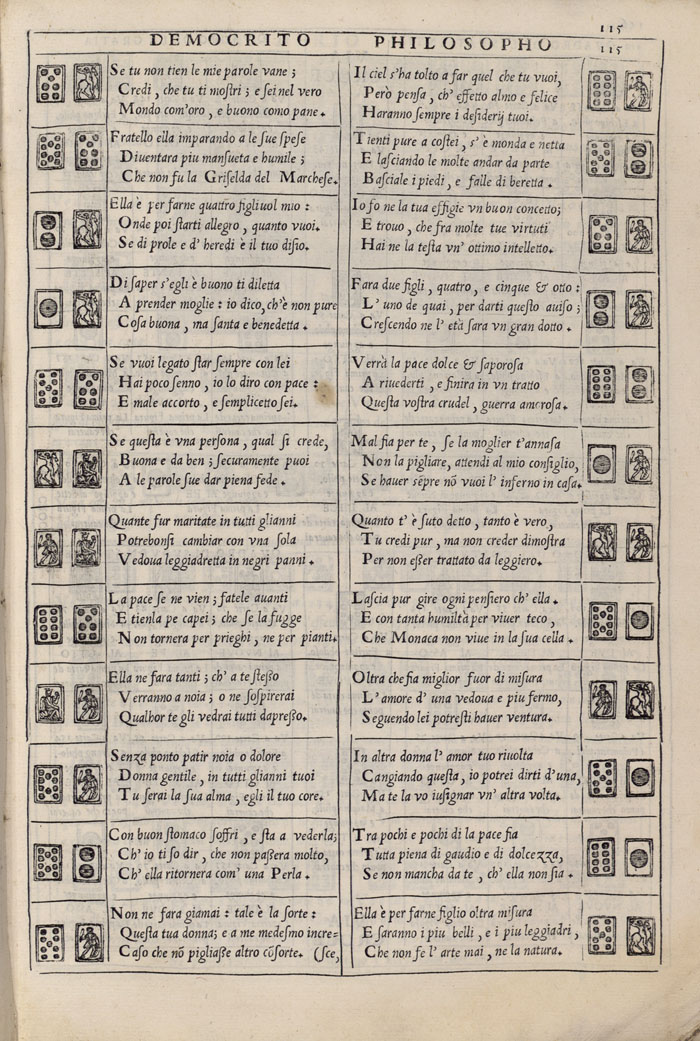 115
DEMOCRITO PHILOSOPHO 115
Se tu non tien le mie parole vane ;
Credi, che tu ti mostri ; e sei nel vero
Mondo com'oro, e buono come pane.
Fratello ella imparando a le sue spese
Diuentara piu mansueta e humile ;
Che non fu la Griselda del Marchese.
Ella è per farne quattro figliuol mio :
Onde poi starti allegro, quanto vuoi.
Se di prole e d' heredi è il tuo disio.
Di saper s'egli è buono ti diletta
A prender moglie : io dico, ch'è non pure
Cosa buona, ma santa e benedetta.
Se vuoi legato star sempre con lei
Hai poco senno, io lo diro con pace :
E male accorto, e semplicetto sei.
Se questa è vna persona, qual si crede,
Buona e da ben ; securamente puoi
A le parole sue dar piena fede.
Quante fur maritate in tutti glianni
Potrebonsi cambiar con vna sola
Vedoua leggiadretta in negri panni.
La pace se ne vien ; fatele auanti
E tienla pe capei ; che se la fugge
Non tornera per prieghi, ne per pianti.
Ella ne fara tanti ; ch' a te stesso
Verranno a noia ; o ne sospirerai
Qualhor te gli vedrai tutti dapresso.
Senza ponto patir noia o dolore
Donna gentile, in tutti glianni tuoi
Tu serai la sua alma, egli il tuo core.
Con buon stomaco soffri, e sta a vederla;
Ch' io ti so dir, che non passera molto,
Ch' ella ritornera com' una Perla.
Non ne fara giamai : tale è la sorte :
Questa tua donna; e a me medesmo incre=
Caso che nō pigliasse altro cōsorte. (sce,
Il ciel s'ha tolto a far quel che tu vuoi,
Però pensa, ch' effetto almo e felice
Haranno sempre i desiderij tuoi.
Tienti pure a costei, s' è monda e netta
E lasciando le molte andar da parte
Basciale i piedi, e falle di beretta.
Io fo ne la tua effigie vn buon concetto;
E trouo, che fra molte tue virtuti
Hai ne la testa vn' ottimo intelletto.
Fara due figli, quatro, e cinque & otto :
L' uno de quai, per darti questo auiso ;
Crescendo ne l' età sara vn gran dotto.
Verrà la pace dolce & saporosa
A riuederti, e finira in vn tratto
Questa vostra crudel, guerra amorosa.
Mal fia per te, se la moglier t'annasa
Non la pigliare, attendi al mio consiglio,
Se hauer sēpre nō vuoi l' inferno in casa.
Quanto t' è suto detto, tanto è vero,
Tu credi pur, ma non creder dimostra
Per non esser trattato da leggiero.
Lascia pur gire ogni pensiero ch' ella.
E con tanta humiltà per viuer teco,
Che Monaca non viue in la sua cella.
Oltra che fia miglior fuor di misura
L' amore d' una vedoua e piu fermo,
Seguendo lei potresti hauer ventura.
In altra donna l' amor tuo riuolta
Cangiando questa, io potrei dirti d'una,
Ma te la vo iusignar vn' altra volta.
Tra pochi e pochi di la pace fia
Tutta piena di gaudio e di dolcezza,
Se non mancha da te, ch' ella non sia.
Ella è per farne figlio oltra misura
E saranno i piu belli, e i piu leggiadri,
Che non fe l' arte mai, ne la natura.